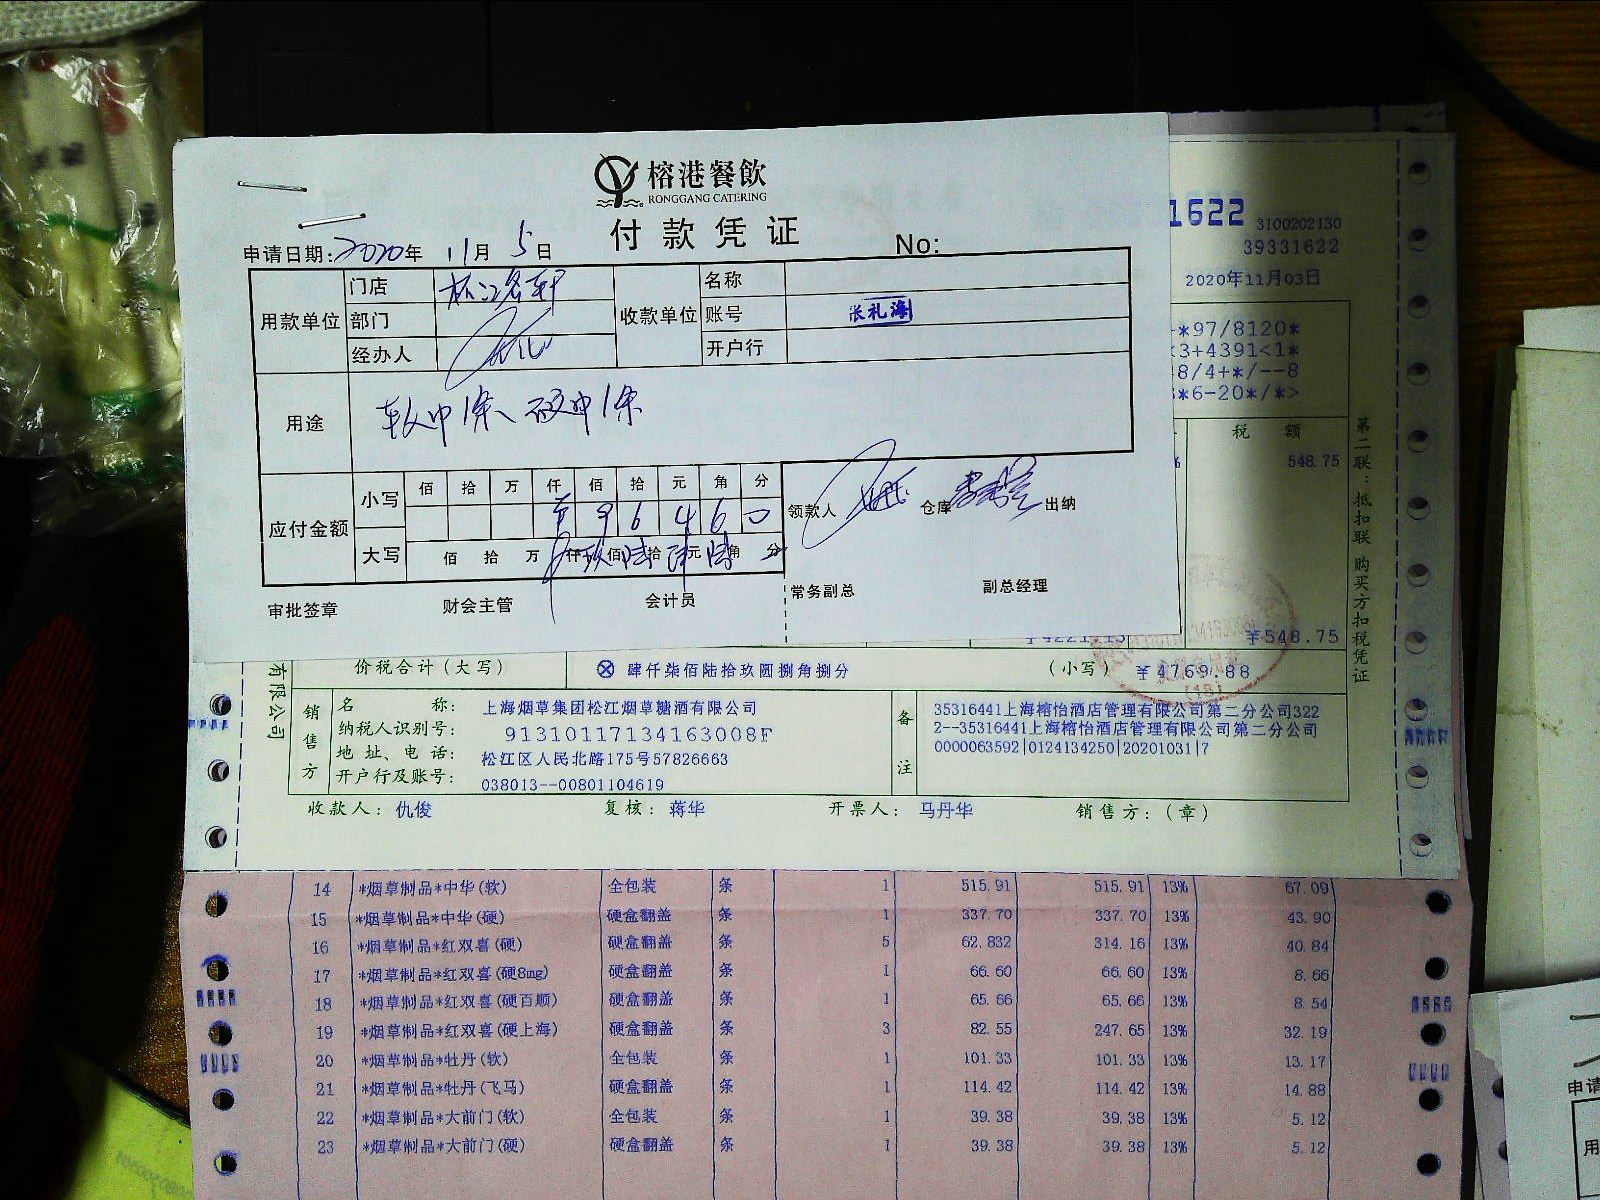 榕港餐飲
RONGGANG CATERING
付款凭证
申请日期:2020年 11月 5日 No:
用款单位 门店 松江名轩 收款单位 名称
部门 账号 张礼海
经办人 开户行
用途 软中1条、硬中1条
应付金额 小写 佰 拾 万 仟 佰 拾 元 角 分
¥ 9 6 4 6 0
大写 佰 拾 万 仟 玖 佰 陆 拾 肆 元 陆 角 分
领款人 仓库 出纳
审批签章 财会主管 会计员 常务副总 副总经理
1622 3100202130
39331622
2020年11月03日
*97/8120*
3+4391<1*
8/4+*/--8
*6-20*/*>
税 额
% 548.75
第二联:抵扣联 购买方扣税凭证
¥548.75
有限公司
价税合计(大写) ⊗ 肆仟柒佰陆拾玖圆捌角捌分 (小写) ¥4769.88
销售方 名 称: 上海烟草集团松江烟草糖酒有限公司
纳税人识别号: 91310117134163008F
地址、电话: 松江区人民北路175号57826663
开户行及账号: 038013--00801104619
备注 35316441上海榕怡酒店管理有限公司第二分公司322
2--35316441上海榕怡酒店管理有限公司第二分公司
0000063592|0124134250|20201031|7
收款人: 仇俊 复核: 蒋华 开票人: 马丹华 销售方:(章)
14 *烟草制品*中华(软) 全包装 条 1 515.91 515.91 13% 67.09
15 *烟草制品*中华(硬) 硬盒翻盖 条 1 337.70 337.70 13% 43.90
16 *烟草制品*红双喜(硬) 硬盒翻盖 条 5 62.832 314.16 13% 40.84
17 *烟草制品*红双喜(硬8mg) 硬盒翻盖 条 1 66.60 66.60 13% 8.66
18 *烟草制品*红双喜(硬百顺) 硬盒翻盖 条 1 65.66 65.66 13% 8.54
19 *烟草制品*红双喜(硬上海) 硬盒翻盖 条 3 82.55 247.65 13% 32.19
20 *烟草制品*牡丹(软) 全包装 条 1 101.33 101.33 13% 13.17
21 *烟草制品*牡丹(飞马) 硬盒翻盖 条 1 114.42 114.42 13% 14.88
22 *烟草制品*大前门(软) 全包装 条 1 39.38 39.38 13% 5.12
23 *烟草制品*大前门(硬) 硬盒翻盖 条 1 39.38 39.38 13% 5.12
申请
用